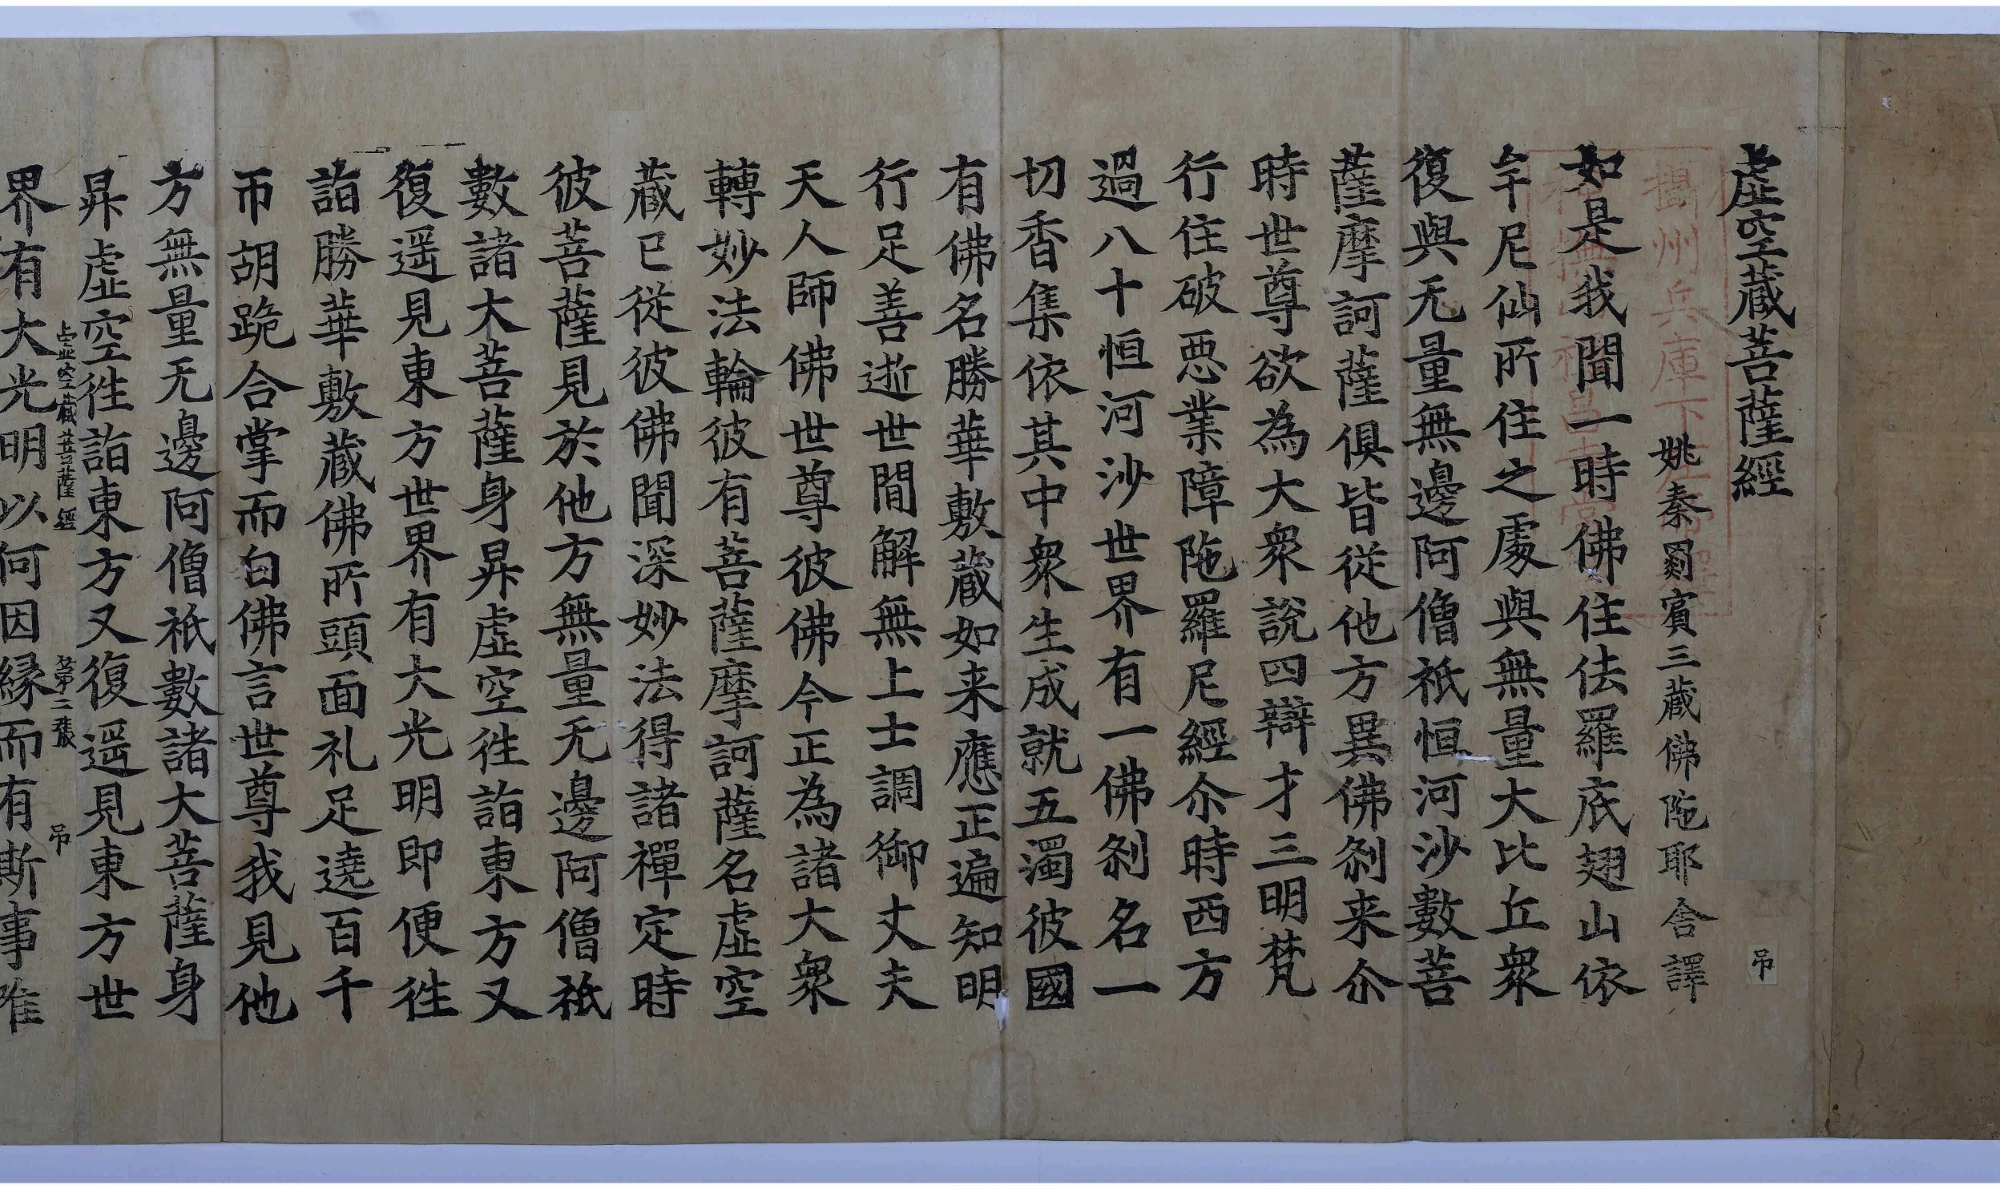 虛空藏菩薩經
弔
姚秦罽賓三藏佛陁耶舍譯
如是我聞一時佛住佉羅底翅山依
牟尼仙所住之處與無量大比丘衆
復與无量無邊阿僧祇恒河沙數菩
薩摩訶薩俱皆從他方異佛刹来尒
時世尊欲為大衆說四辯才三明梵
行住破惡業障陁羅尼經尒時西方
過八十恒河沙世界有一佛刹名一
切香集依其中衆生成就五濁彼國
有佛名勝華敷藏如来應正遍知明
行足善逝世閒解無上士調御丈夫
天人師佛世尊彼佛今正為諸大衆
轉妙法輪彼有菩薩摩訶薩名虛空
藏已從彼佛聞深妙法得諸禪定時
彼菩薩見於他方無量无邊阿僧祇
數諸大菩薩身昇虛空往詣東方又
復遥見東方世界有大光明即便往
詣勝華敷藏佛所頭面礼足遶百千
帀胡跪合掌而白佛言世尊我見他
方無量无邊阿僧祇數諸大菩薩身
昇虛空往詣東方又復遥見東方世
虛空藏菩薩經 第二張 弔
界有大光明以何因縁而有斯事唯